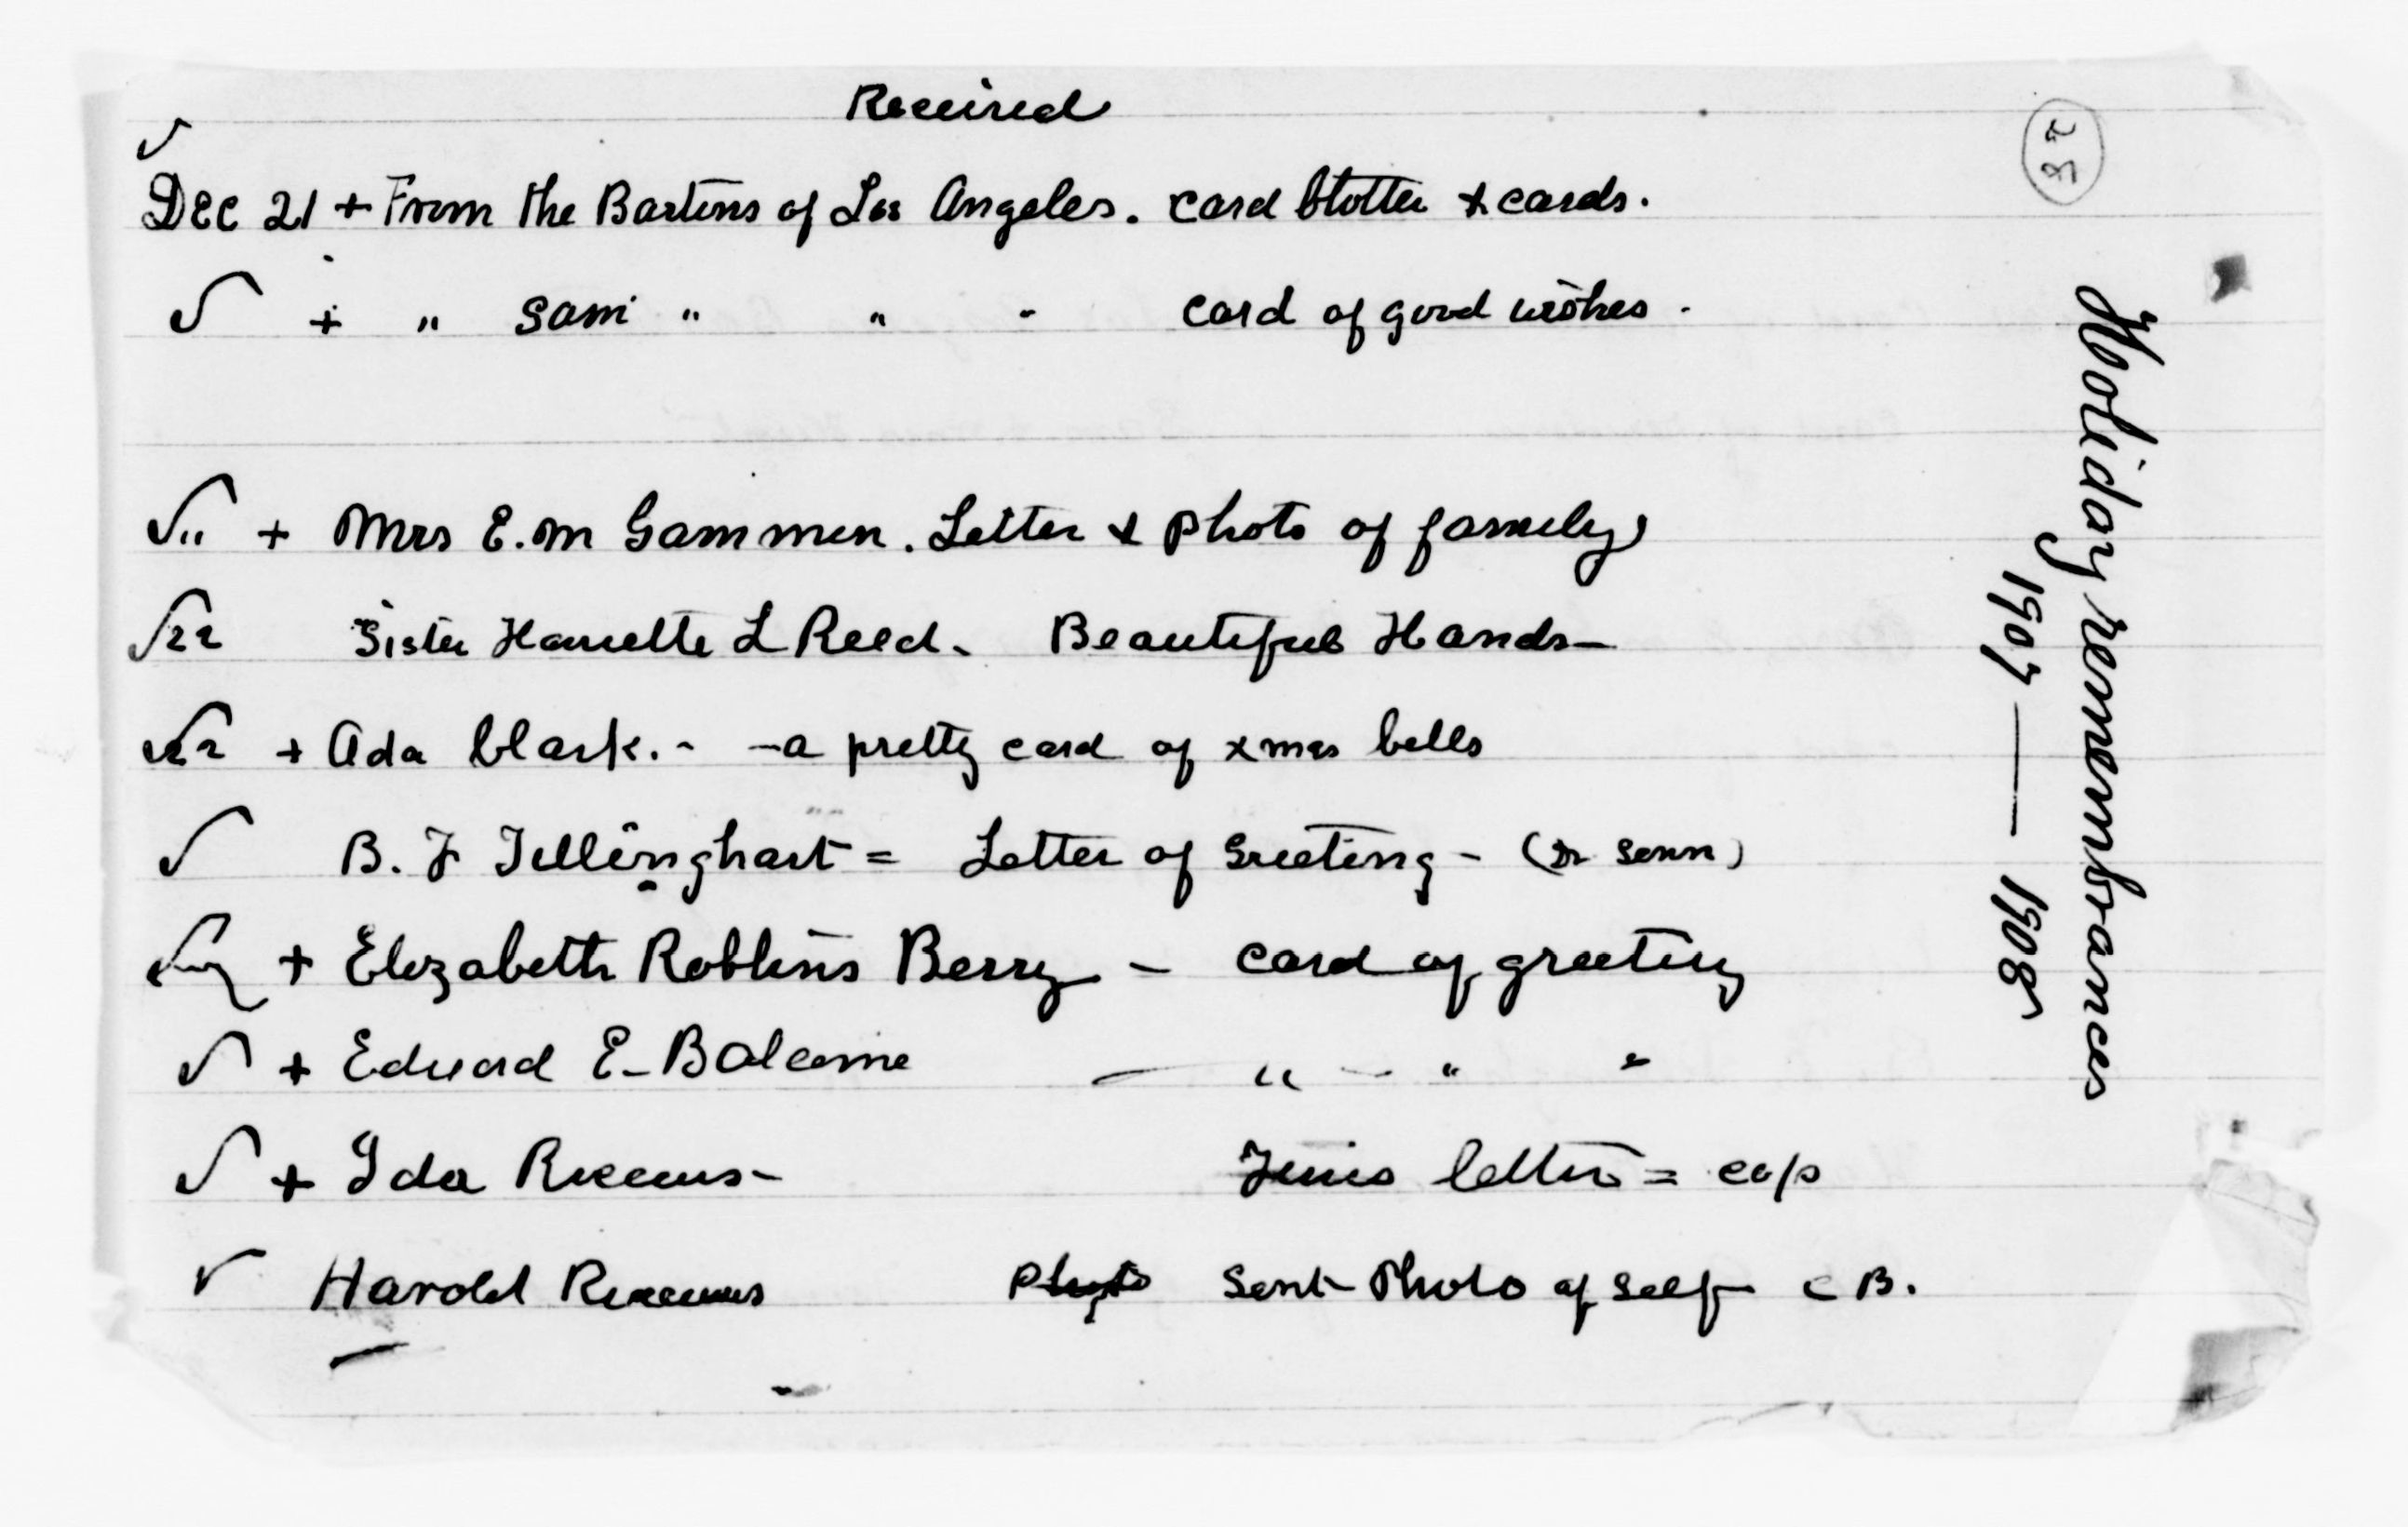 Received
Dec 21 + From the Bartons of Los Angeles. card blotter & cards.
√ + " Sam " " " card of good wishes.
√ " + Mrs E. M Gammon. Letter & photo of family
√ 22 Sister Harrette L Reed. Beautiful Hands—
√ 22 + Ada Clark. - - a pretty card of xmas bells
√ B. F Tillinghast = Letter of Greeting - (Dr Senn)
√ + Elizabeth Robbins Berry — card of greeting
√ + Edward E - Balcome — " — " "
√ + Ida Riccius - letter = cap
√ Harold Riccius Photo Sent Photo of self C B.
Holiday remembrances
1907 — 1908